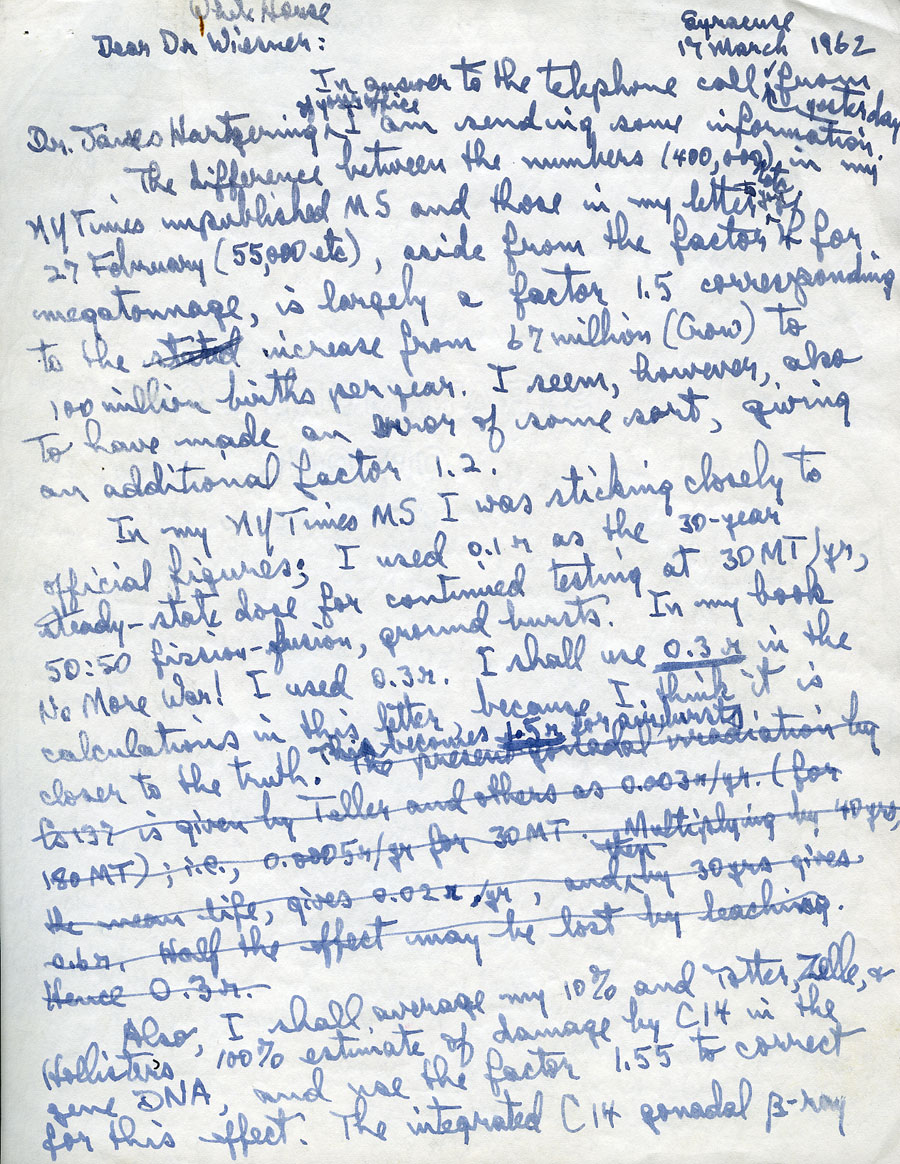 White House
Syracuse
Dear Dr Wiesner:
17 March 1962
In answer to the telephone call from
of your office
yesterday
Dr. James Hartgering, I am sending some information.
The difference between the numbers (400,000) in my
Note,
NY Times unpublished MS and those in my letter of
27 February (55,000 etc), aside from the factor 4 for
megatonnage, is largely a factor 1.5 corresponding
to the stated increase from 67 million (Crow) to
100 million births per year. I seem, however, also
to have made an error of some sort, giving
an additional factor 1.2.
In my NY Times MS I was sticking closely to
official figures; I used 0.1 r as the 30-year
steady-state dose for continued testing at 30 MT/yr,
50:50 fission-fusion, ground bursts. In my book
No More War! I used 0.3 r. I shall use 0.3 r in the
calculations in this letter, because I think it is
closer to the truth. This becomes 1.5 r for air bursts.
The present gonadal irradiation by
Cs137 is given by Teller and others as 0.003 r/yr. (for
180 MT); i.e., 0.0005 r/yr for 30 MT. Multiplying by 40 yrs,
the mean life, gives 0.02 r /yr, and by 30 yrs gives
yr
0.6 r. Half the effect may be lost by leaching.
Hence 0.3 r.
Also, I shall average my 10% and Totter, Zelle, &
Hollister's 100% estimate of damage by C14 in the
gene DNA, and use the factor 1.55 to correct
for this effect. The integrated C14 gonadal β-ray